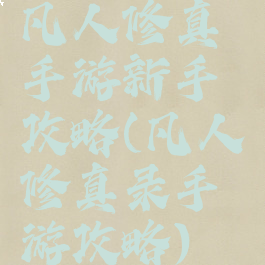 凡人修真
手游新手
攻略(凡人
修真录手
游攻略)